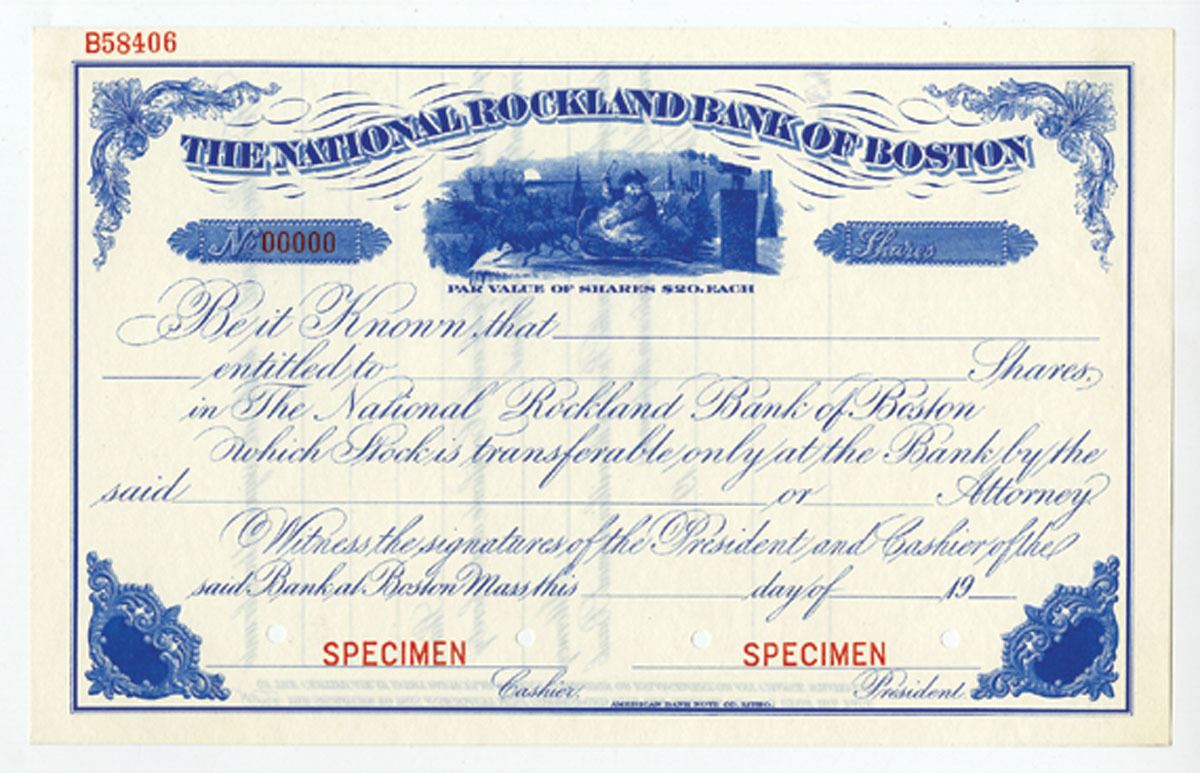 B58406
THE NATIONAL ROCKLAND BANK OF BOSTON
No. 00000
Shares
PAR VALUE OF SHARES $20. EACH
Be it Known, that
entitled to Shares,
in The National Rockland Bank of Boston
which Stock is transferable only at the Bank by the
said or Attorney
Witness the signatures of the President and Cashier of the
said Bank at Boston Mass this day of 19
SPECIMEN SPECIMEN
Cashier. President
AMERICAN BANK NOTE CO. LITHO.